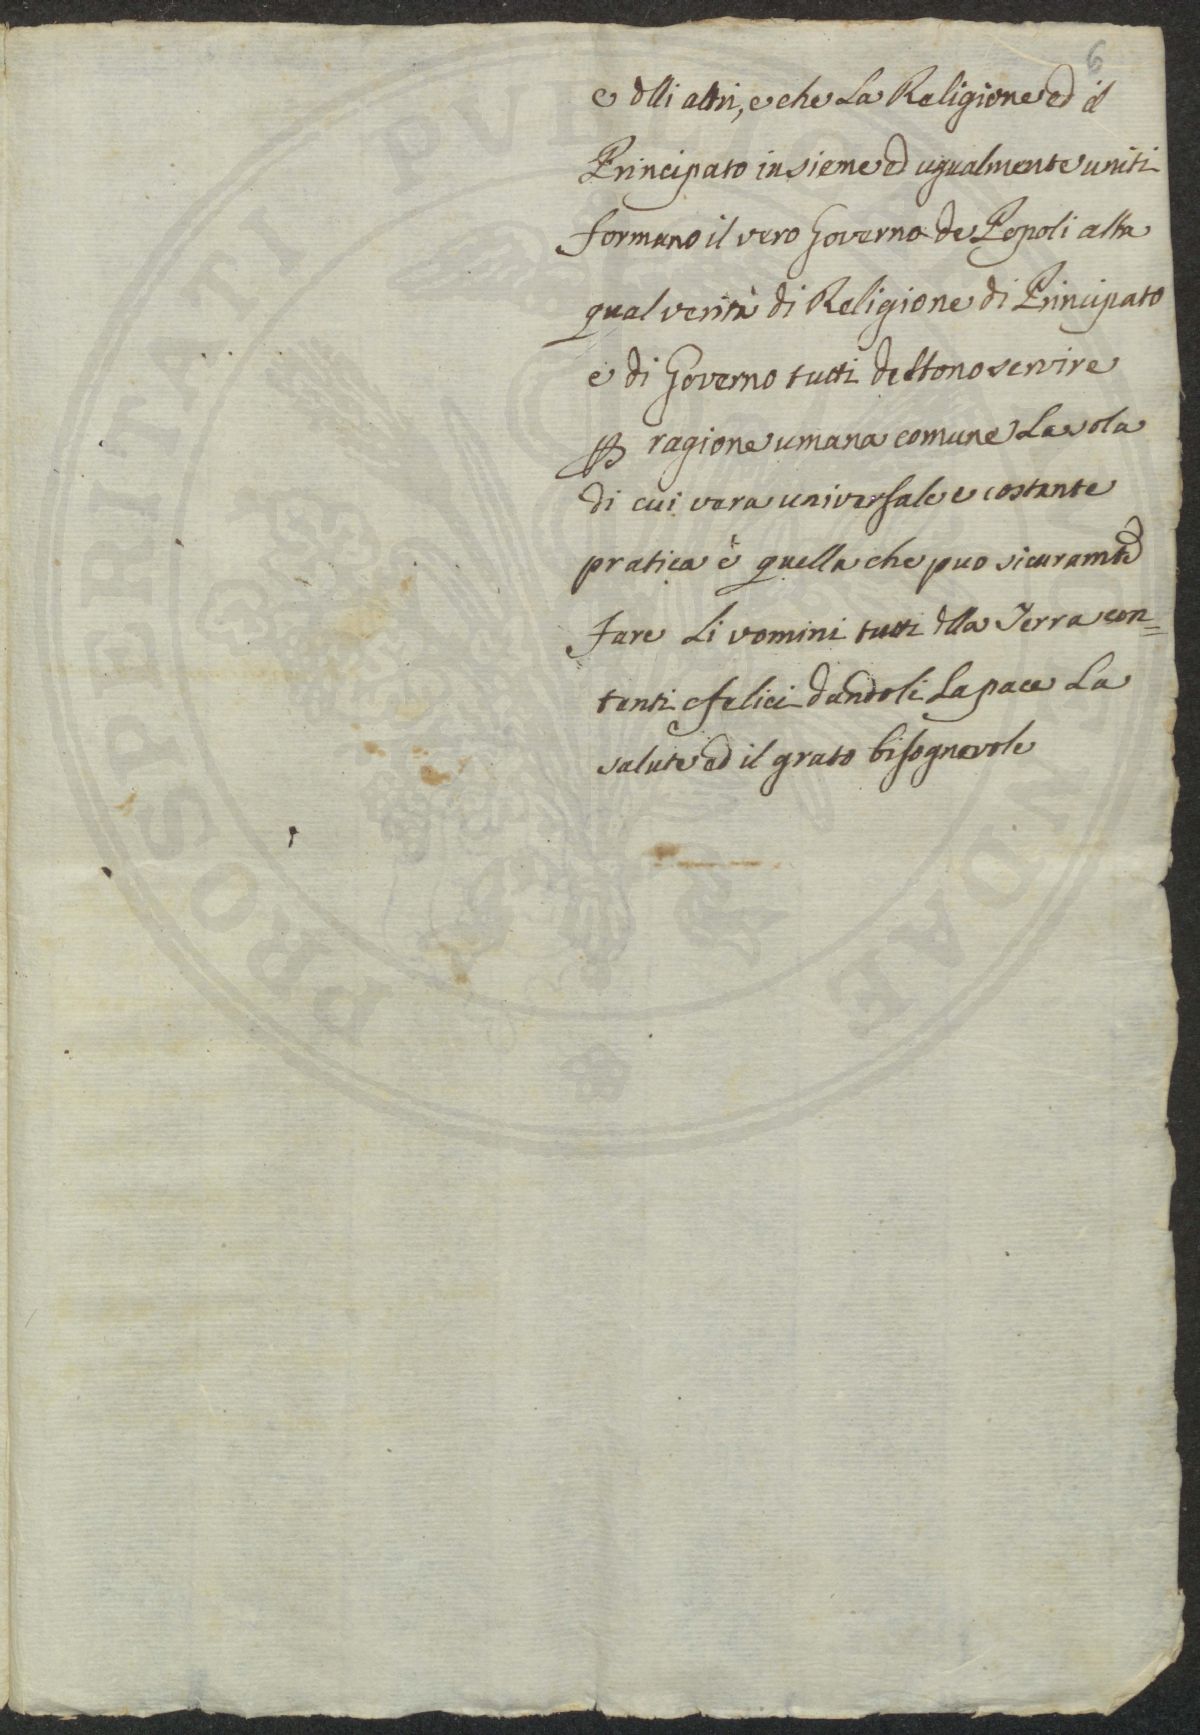 6
e dlli altri, e che La Religione ed il
Principato insieme ed ugualmente uniti
formano il vero Governo de Popoli alla
qual verità di Religione di Principato
e di Governo tutti debbono servire
ragione umana comune La sola
di cui vera universale e costante
pratica è quella che puo sicuramte
fare Li uomini tutti dlla Terra con=
tenti e felici dandoli La pace La
salute ed il grato bisognevole